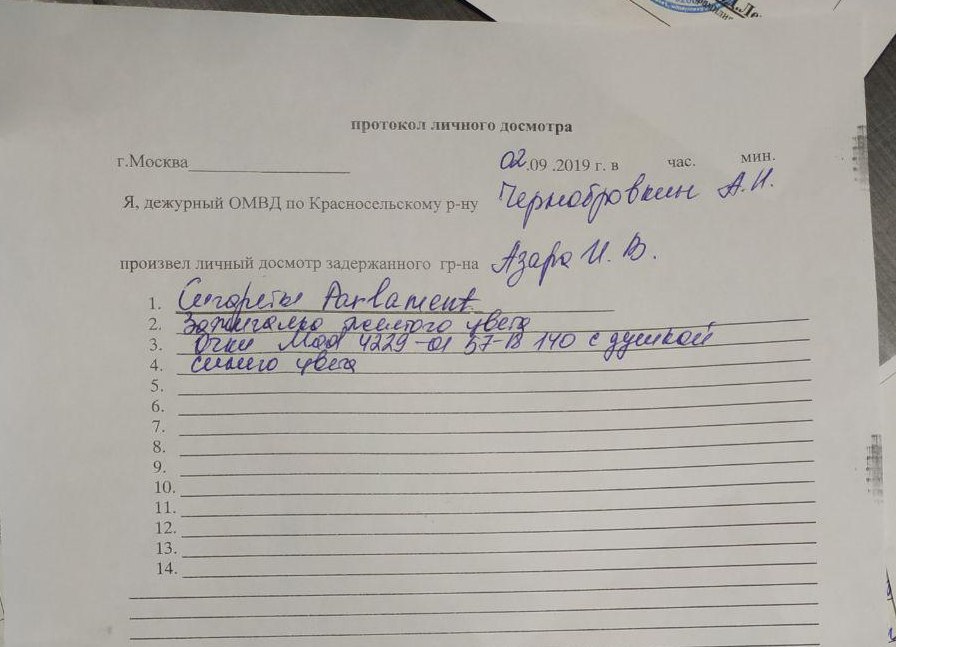 протокол личного досмотра
г.Москва 02.09 .2019 г. в час. мин.
Я, дежурный ОМВД по Красносельскому р-ну Чернобровкин А.И.
произвел личный досмотр задержанного гр-на Азара И. В.
1. Сигареты Parlament
2. Зажигалка желтого цвета
3. Очки Mod 4229-01 57-18 140 с душкой
4. синего цвета
5.
6.
7.
8.
9.
10.
11.
12.
13.
14.